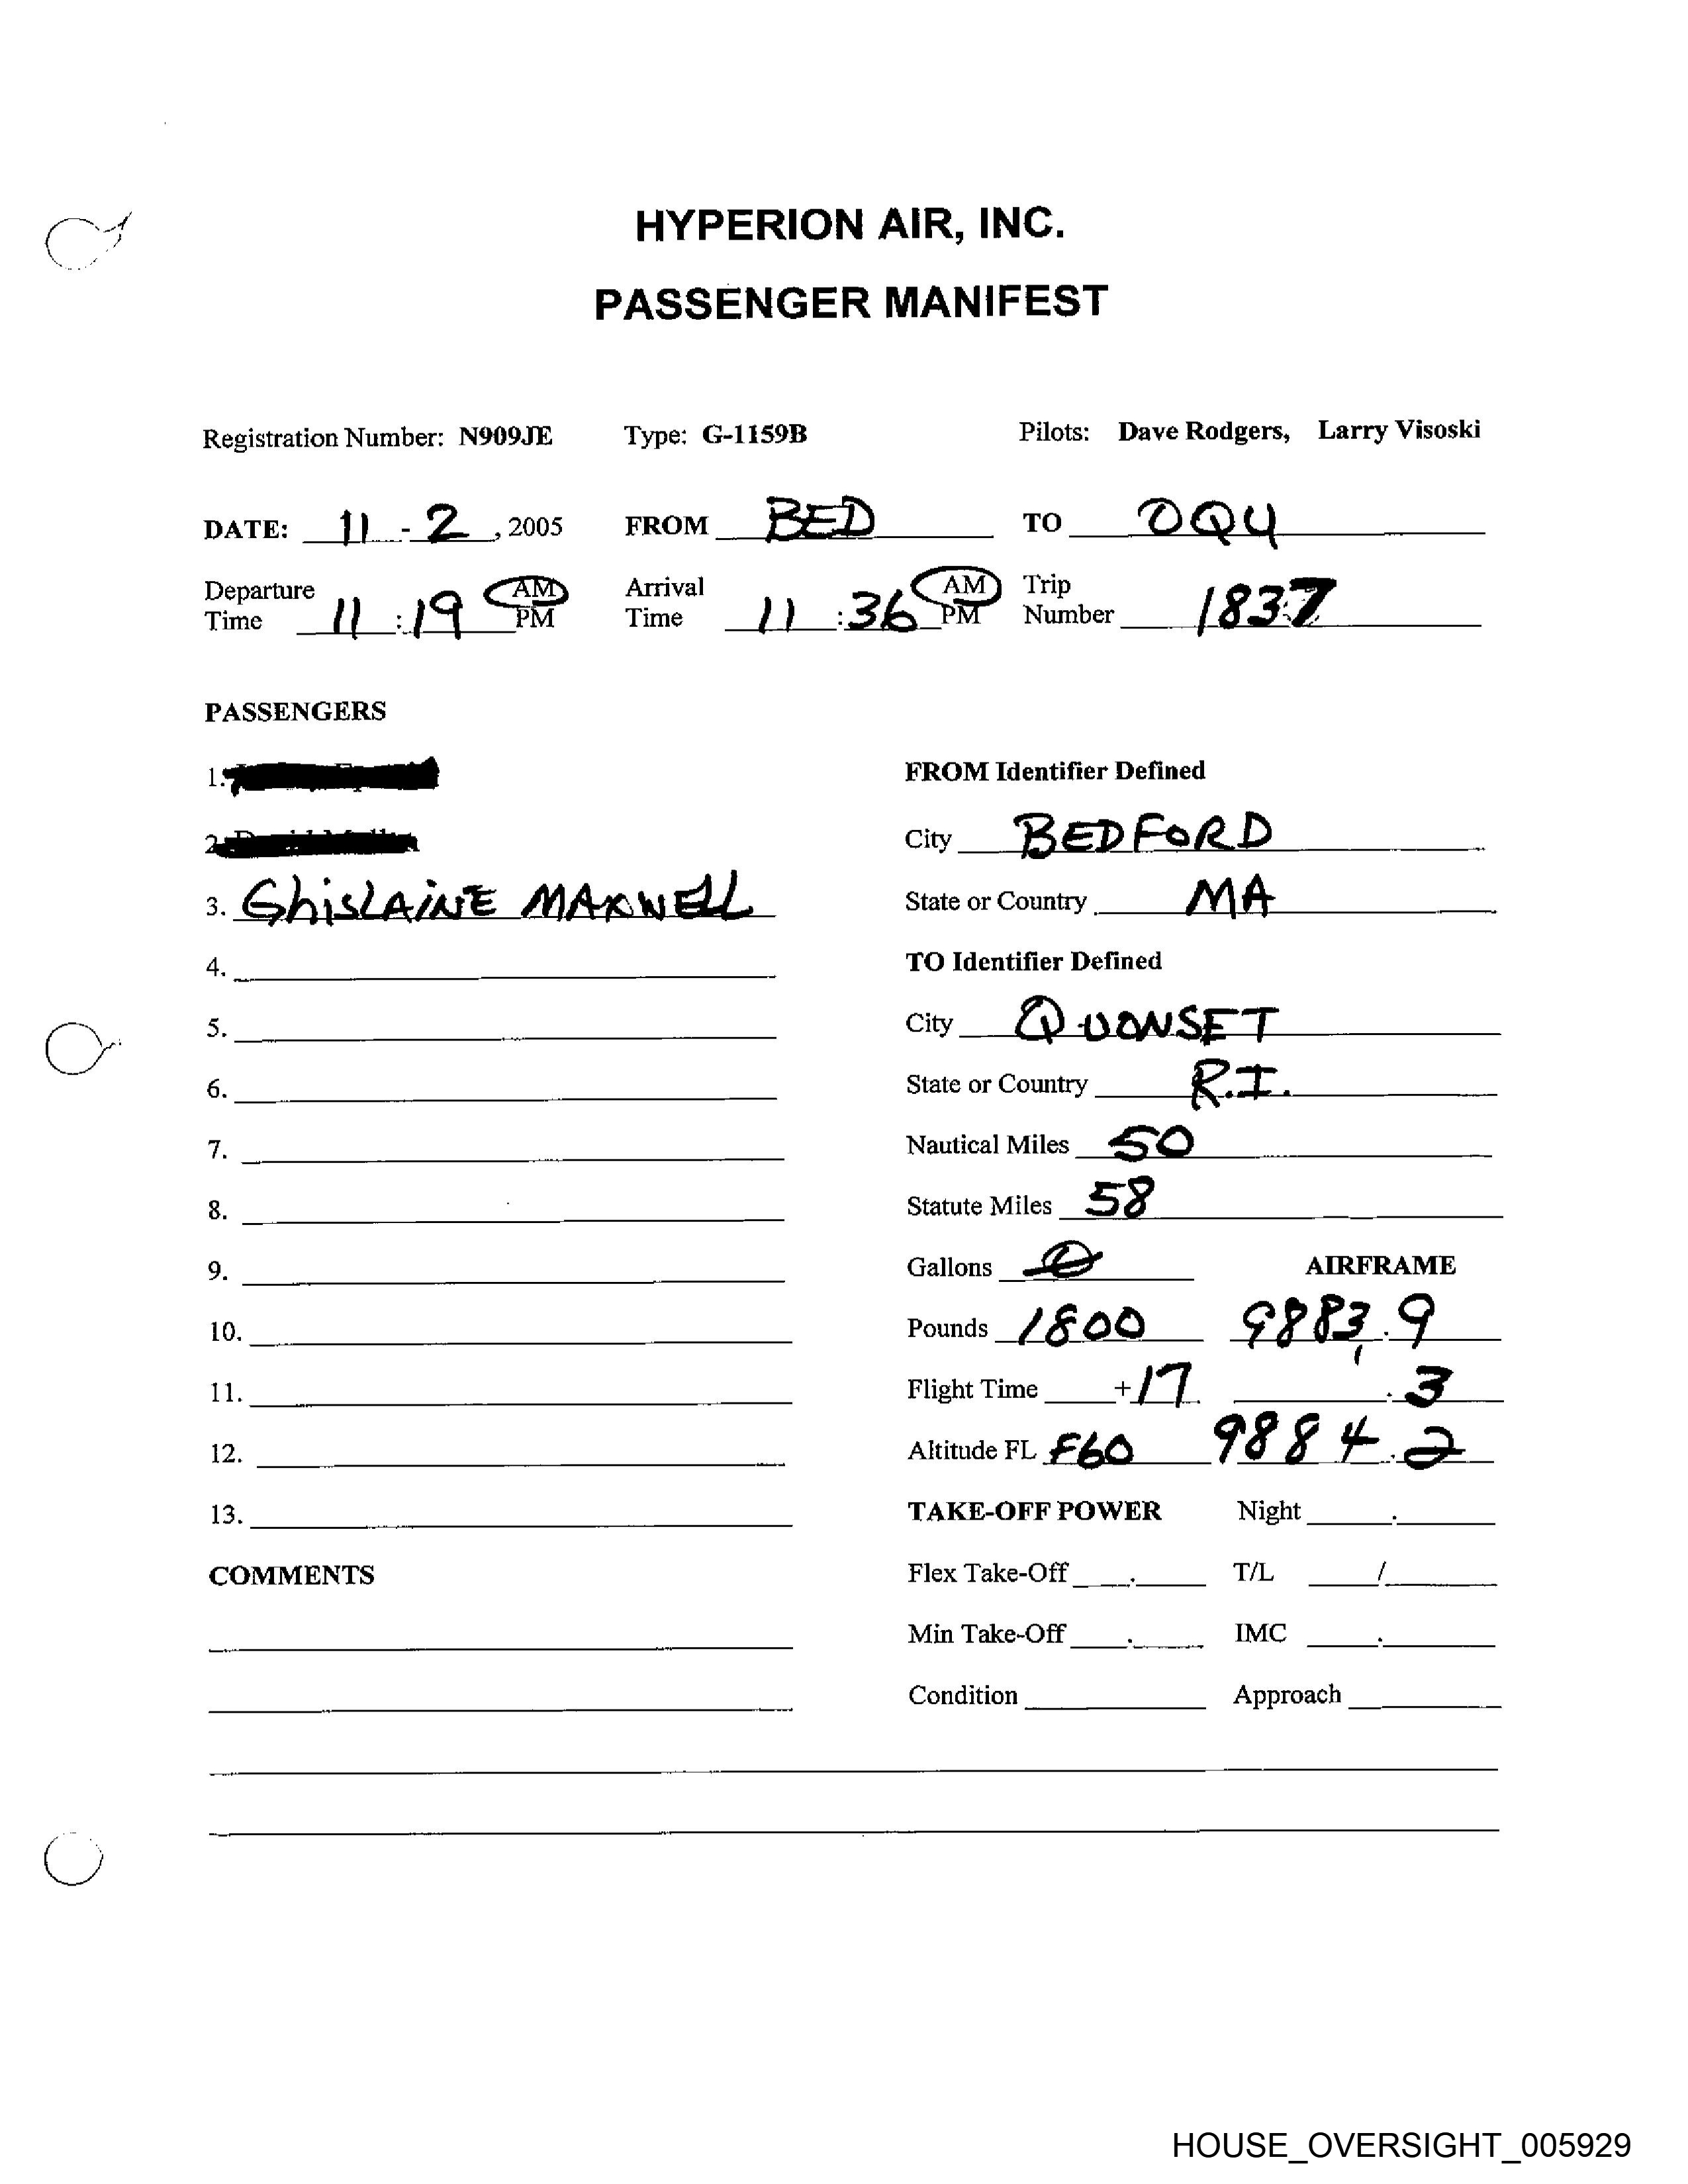 HYPERION AIR, INC.
PASSENGER MANIFEST
Registration Number: N909JE Type: G-1159B Pilots: Dave Rodgers, Larry Visoski
DATE: 11 - 2, 2005 FROM BED TO OQU
Departure Time 11:19 AM PM Arrival Time 11:36 AM PM Trip Number 1837
PASSENGERS
1.
2.
3. GhisLAiNE MAXWELL
4.
5.
6.
7.
8.
9.
10.
11.
12.
13.
COMMENTS
FROM Identifier Defined
City BEDFORD
State or Country MA
TO Identifier Defined
City QUONSET
State or Country R.I.
Nautical Miles 50
Statute Miles 58
Gallons AIRFRAME
Pounds 1800 9883.9
Flight Time +17 .3
Altitude FL F60 9884.2
TAKE-OFF POWER Night .
Flex Take-Off . T/L /
Min Take-Off . IMC .
Condition Approach
HOUSE_OVERSIGHT_005929